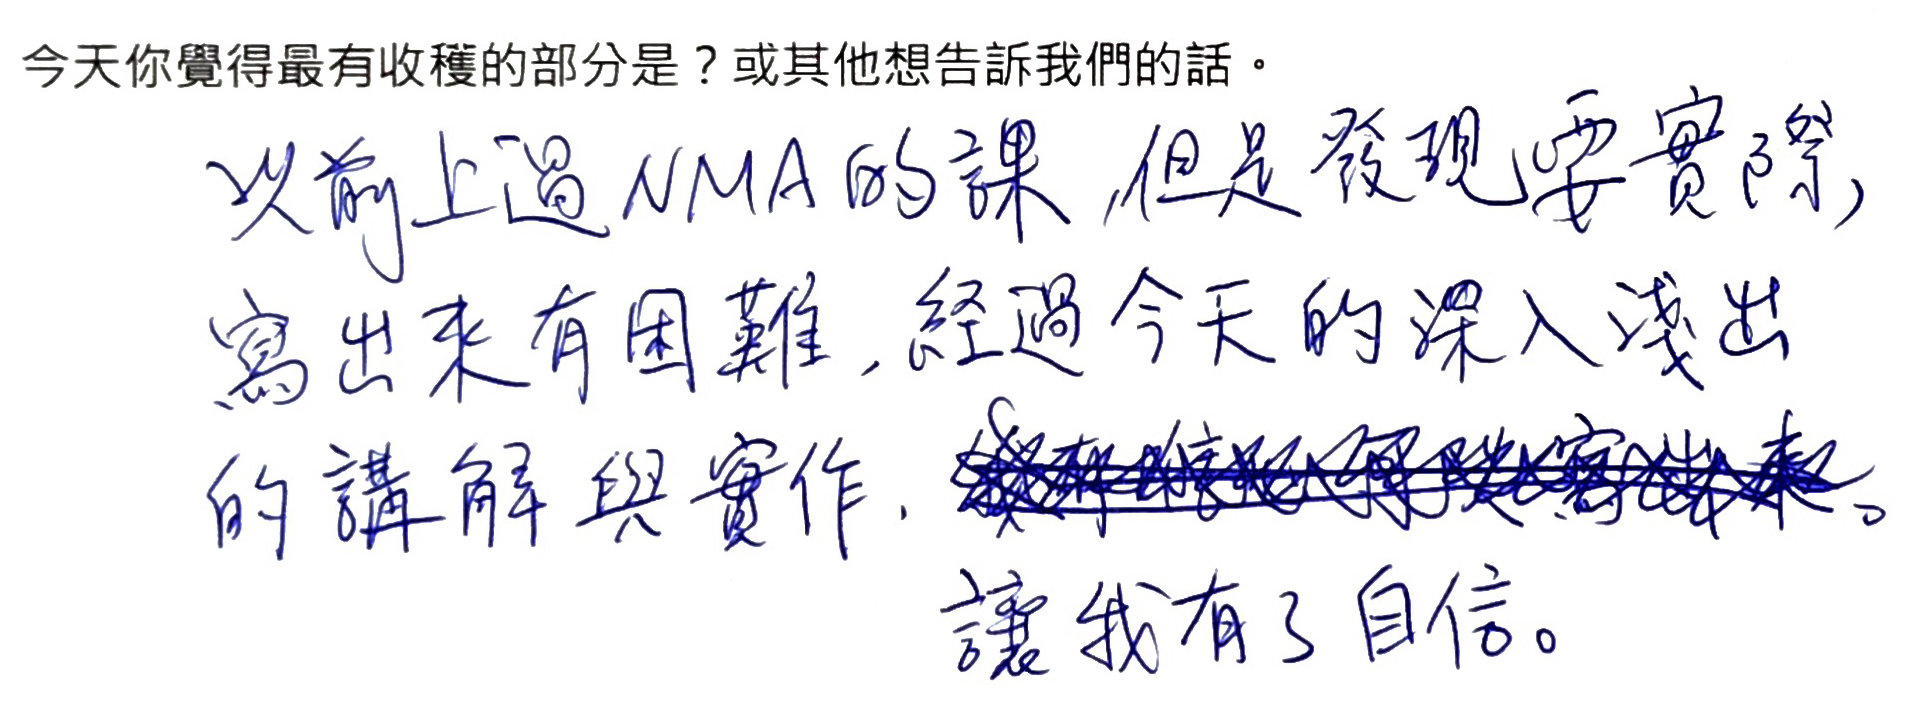 今天你覺得最有收穫的部分是？或其他想告訴我們的話。
以前上過NMA的課,但是發現要實際,
寫出來有困難,經過今天的深入淺出
的講解與實作,
讓我有了自信。